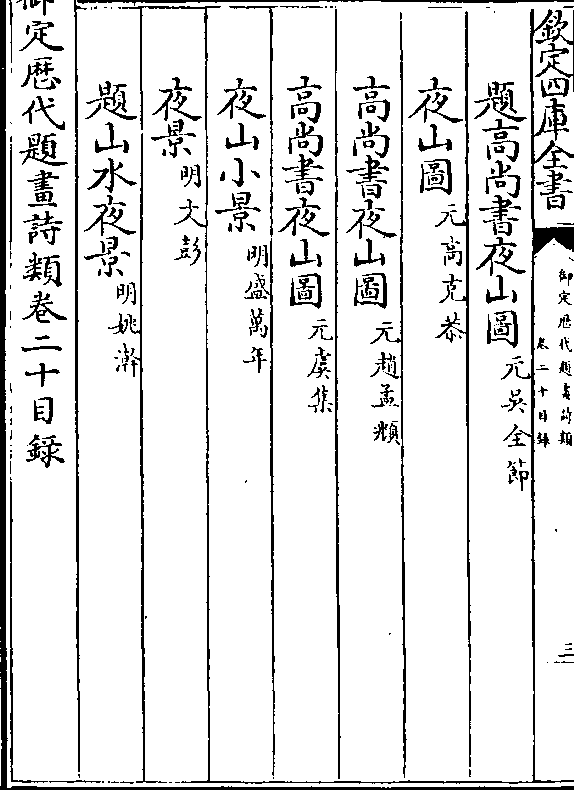 欽定四庫全書
御定歴代題畫詩類
卷二十目録
三
題高尚書夜山圖 元吳全節
夜山圖 元高克恭
高尚書夜山圖 元趙孟頫
高尚書夜山圖 元虞集
夜山小景 明盛萬年
夜景 明文彭
題山水夜景 明姚澣
御定歴代題畫詩類卷二十目録